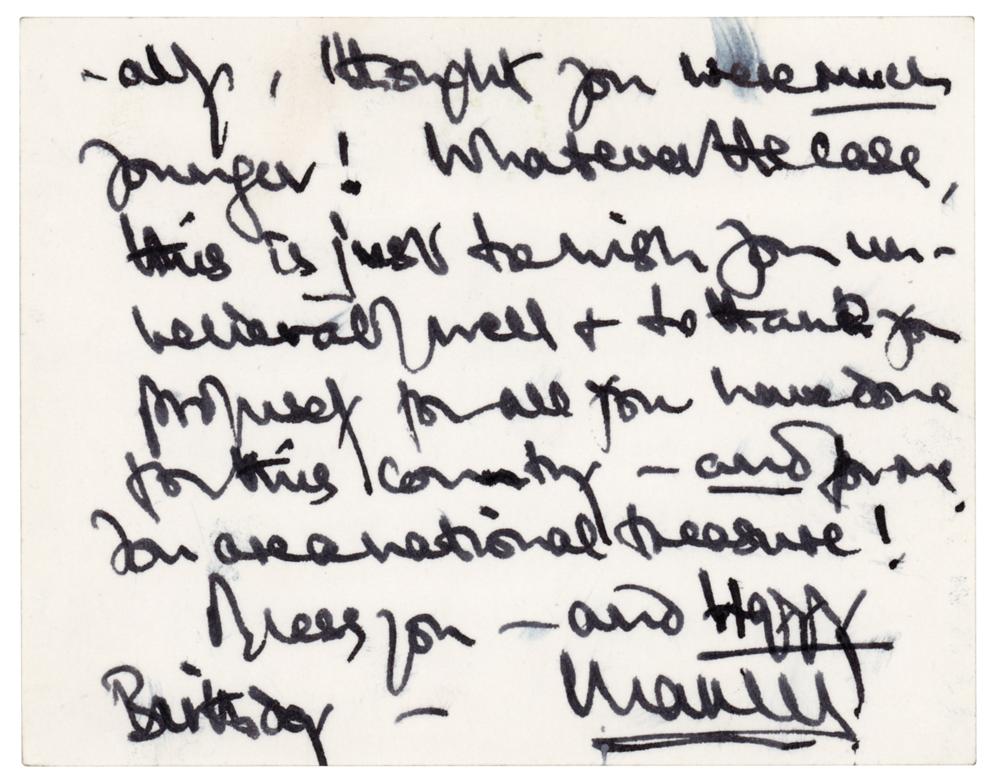 -ally, I thought you were much
younger! Whatever the case,
this is just to wish you un-
believably well + to thank you
profusely for all you have done
for this country - and for me.
You are a national treasure!
Bless you - and Happy
Birthday -